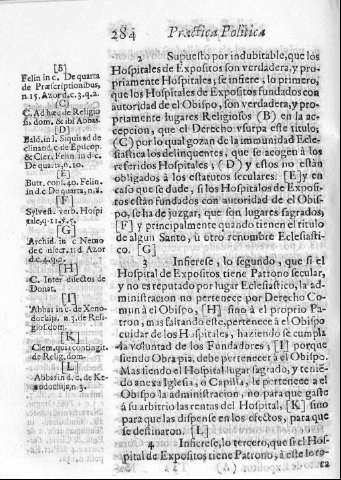 284 Practica Politica
2 Supuesto por indubitable, que los
Hospitales de Expositos son verdadera, y pro-
priamente Hospitales; se infiere, lo primero,
que los Hospitales de Expositos fundados con
autoridad de el Obispo, son verdadera, y pro-
priamente lugares Religiosos (B) en la ac-
cepcion, que el Derecho vsurpa este titulo;
(C) por lo qual gozan de la immunidad Ecle-
siastica los delinquentes, que se acogen à los
referidos Hospitales, (D) y estos no están
obligados à los estatutos seculares: [E] y en
caso que se dude, si los Hospitales de Exposi-
tos están fundados con autoridad de el Obis-
po, se ha de juzgar, que son lugares sagrados,
[F] y principalmente quando tienen el titulo
de algun Santo, ù otro renombre Eclesiasti-
co. [G]
3 Infierese, lo segundo, que si el
Hospital de Expositos tiene Patrono secular,
y no es reputado por lugar Eclesiastico, la ad-
ministracion no pertenece por Derecho Co-
mun à el Obispo, [H] sino à el proprio Pa-
trono, mas faltando este, pertenece à el Obispo
cuidar de los Hospitales, haziendo se cumpla
la voluntad de los Fundadores; [I] porque
siendo Obra pia, debe pertenecer à el Obispo.
Mas siendo el Hospital lugar sagrado, y tenié-
do anexa Iglesia, o Capilla, le pertenece à el
Obispo la administracion, no para que gaste
à su arbitrio las rentas del Hospital, [K] sino
para que las dispense en los efectos, para que
se destinaron. [L]
4 Infierese, lo tercero, que si el Hos-
pital de Expositos tiene Patrono, à este lo to-
ca
[B]
Felin in c. De quarta
de Præscriptionibus,
n. 15. Azor d. c. 3. q. 2.
(C)
C. Ad hæc de Religio
sis dom. & ibi Abbas.
(D)
Bald. in l. Siquis ad de
clinandi, c. de Episcop.
& Cler. Felin. in d. c.
De quarta, n. 10.
[E]
Butr. cons. 40. Felin.
in d. c. De quarta, n. 8.
[F]
Sylvest. verb. Hospi-
tale, q. 11. 5. 5.
[G]
Archid. in c. Nemo
de consecr. n. d. Azor
d. c. 4. q. 2.
[H]
C. Inter dilectos de
Donat.
[I]
Abbas in c. de Xeno-
dochijs, n. 3. de Reli-
gios. dom.
[K]
Clem. quia contingit.
de Relig. dom.
[L]
Abbas in d. c. de Xe-
nodochijs, n. 3.